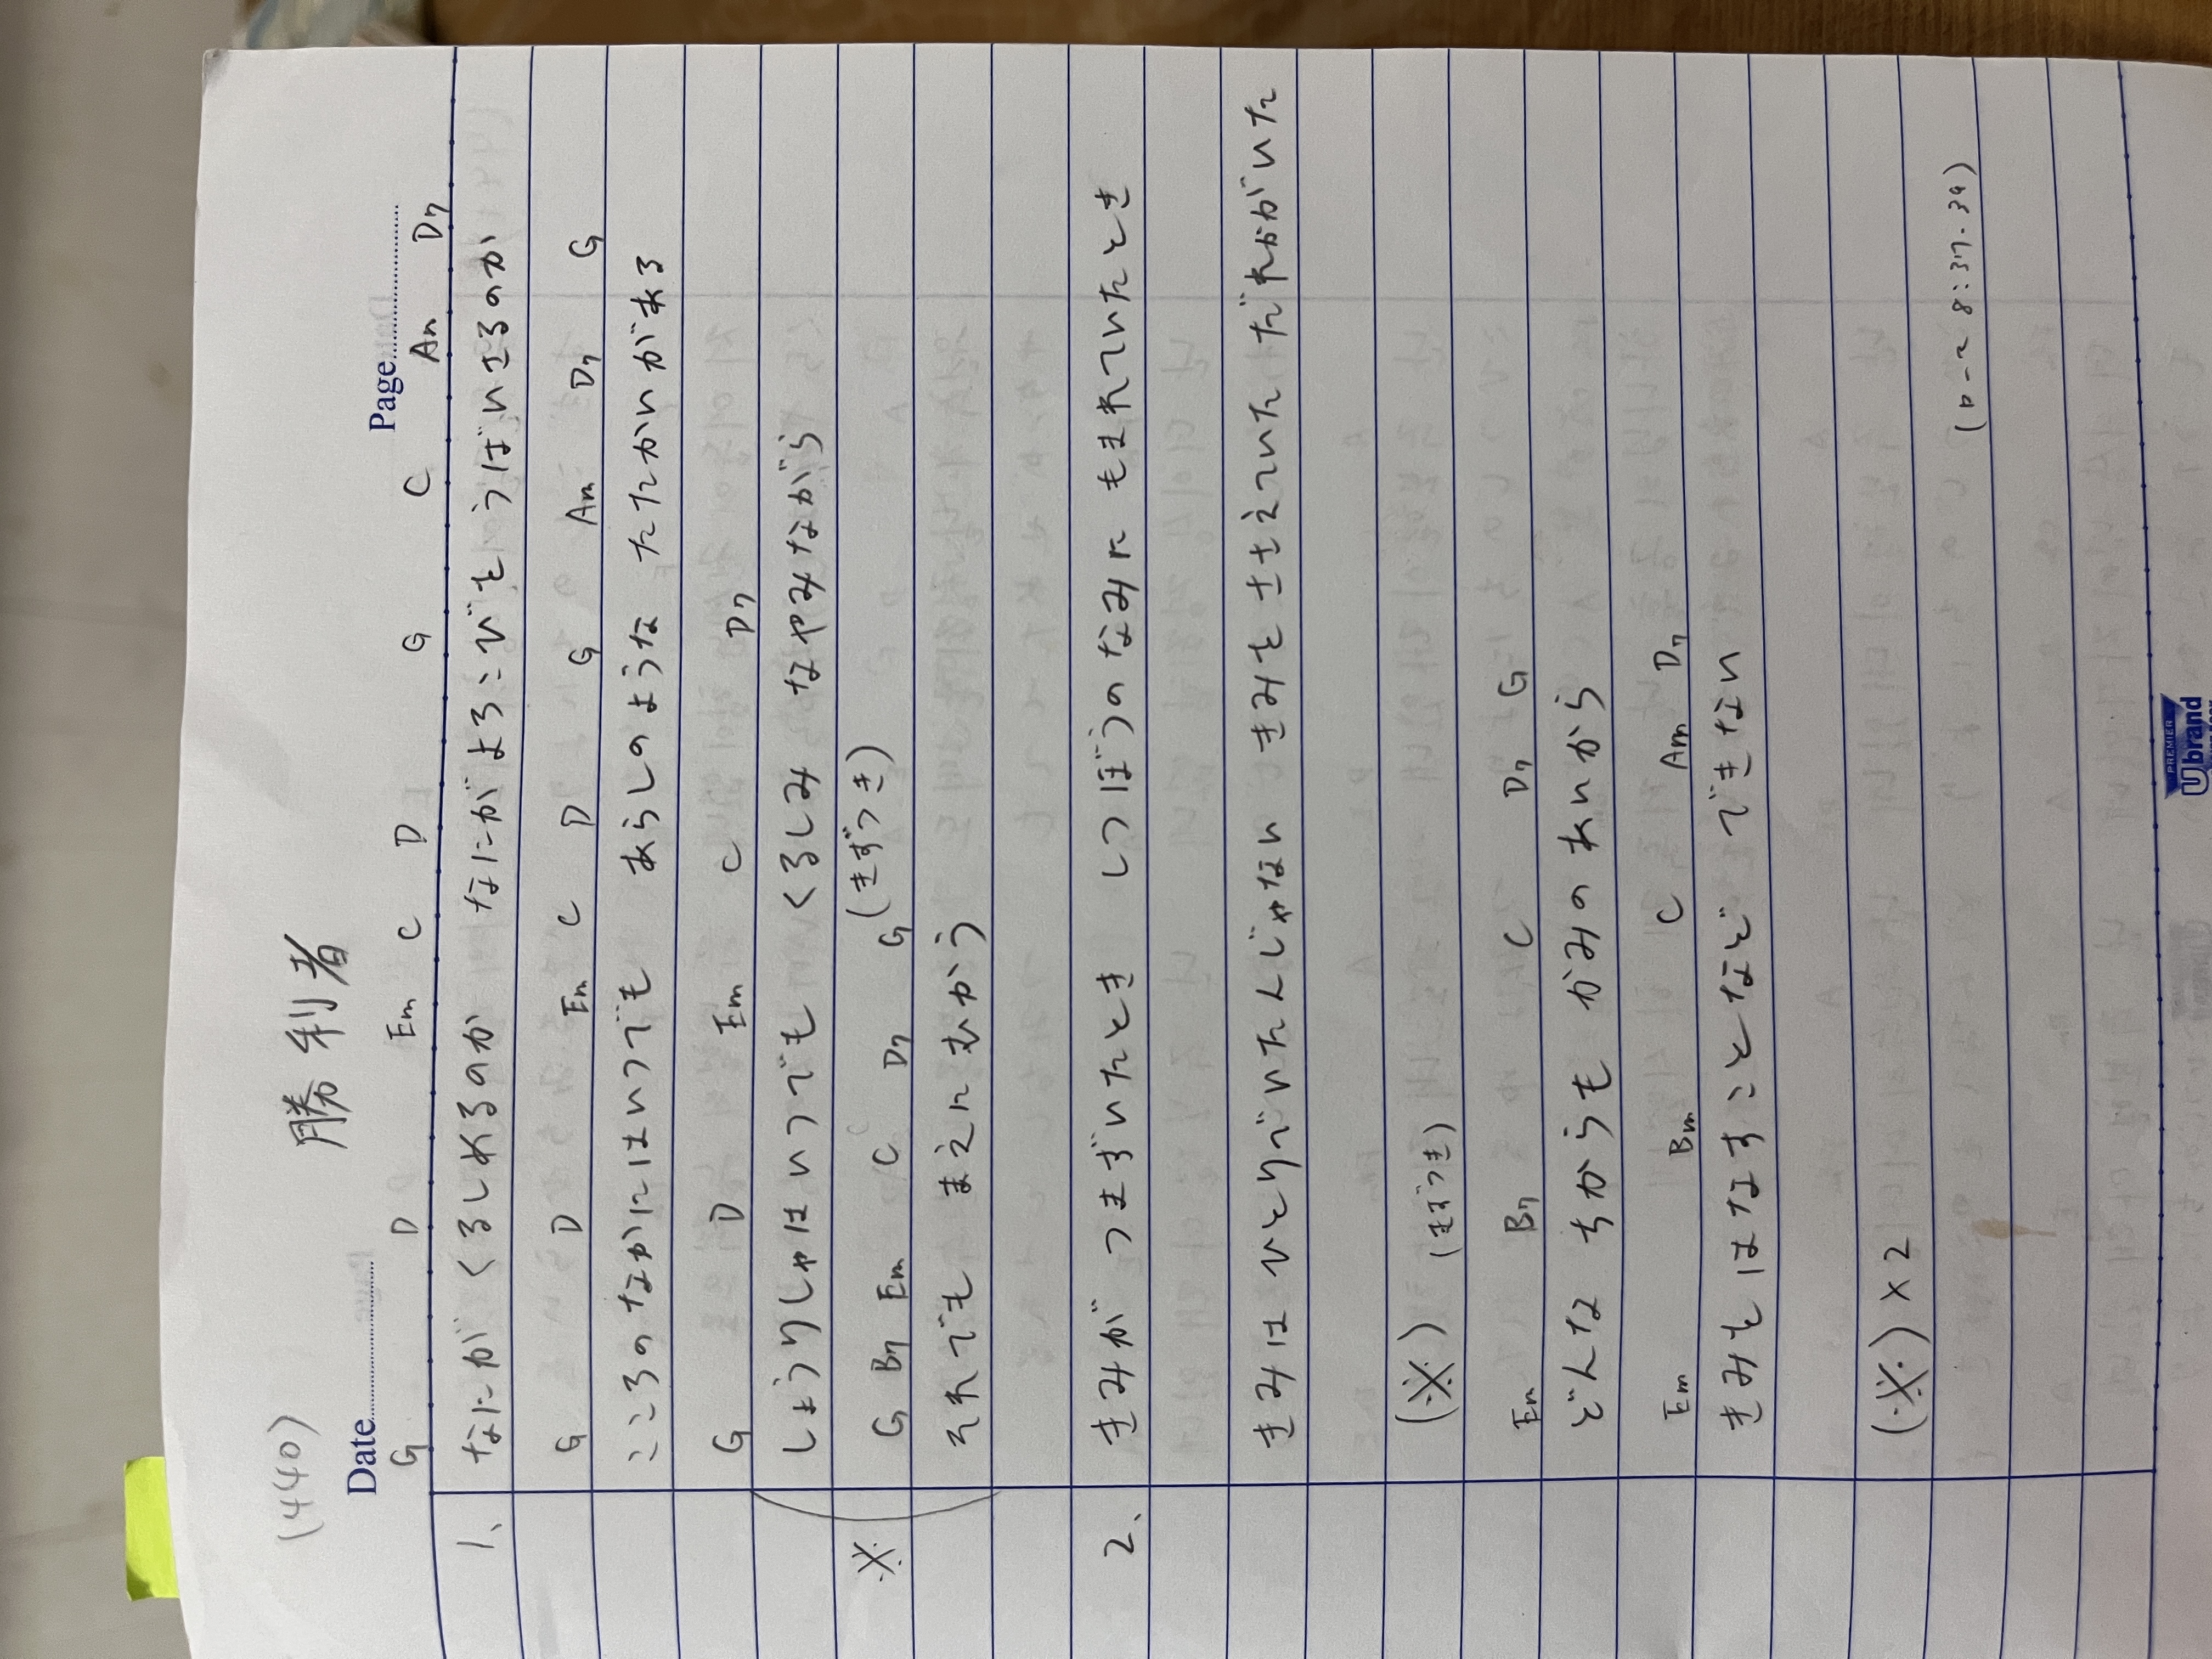 (440) 勝利者
Date Page
G D Em C D G C Am D7
1、 なにが くるしめるのか なにがよろこびをうばいさるのか
G D Em C D G Am D7 G
こころのなかにはいつでも あらしのような たたかいがある
G D Em C D7
しょうりしゃはいつでも くるしみ なやみながら
※ G B7 Em C D7 G (きずつき)
それでも まえにむかう
2、 きみが つまずいたとき しつぼうのなみに もまれていたとき
きみはひとりでいたんじゃない きみをささえていただれかがいた
(※) (きずつき)
Em B7 C D7 G
どんな ちからも かみのあいから
Em Bm C Am D7
きみをはなすことなど できない
(※) × 2
(ローマ 8:37.39)
PREMIER
Ubrand